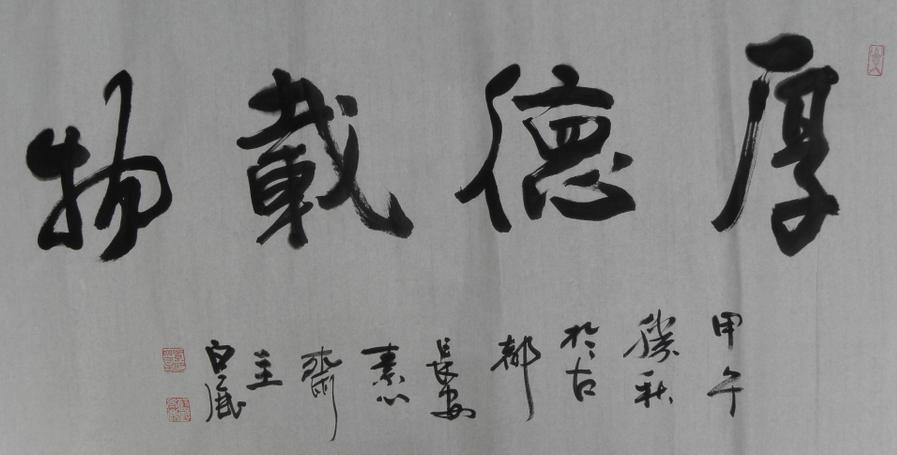 厚德載物
甲午
勝秋
於古
都
長安
素心
齋
主